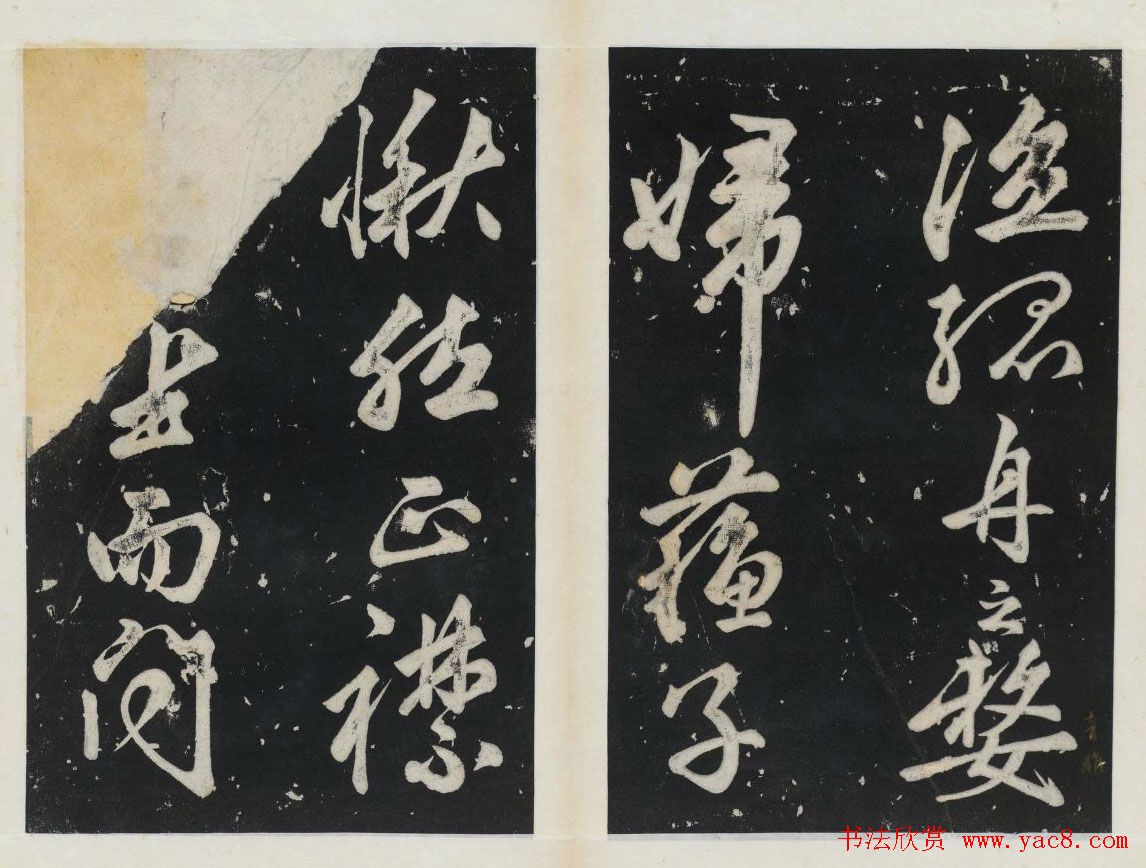 泣孤舟之嫠
婦蘓子
愀然正襟
坐而問
书法欣赏 www.yac8.com